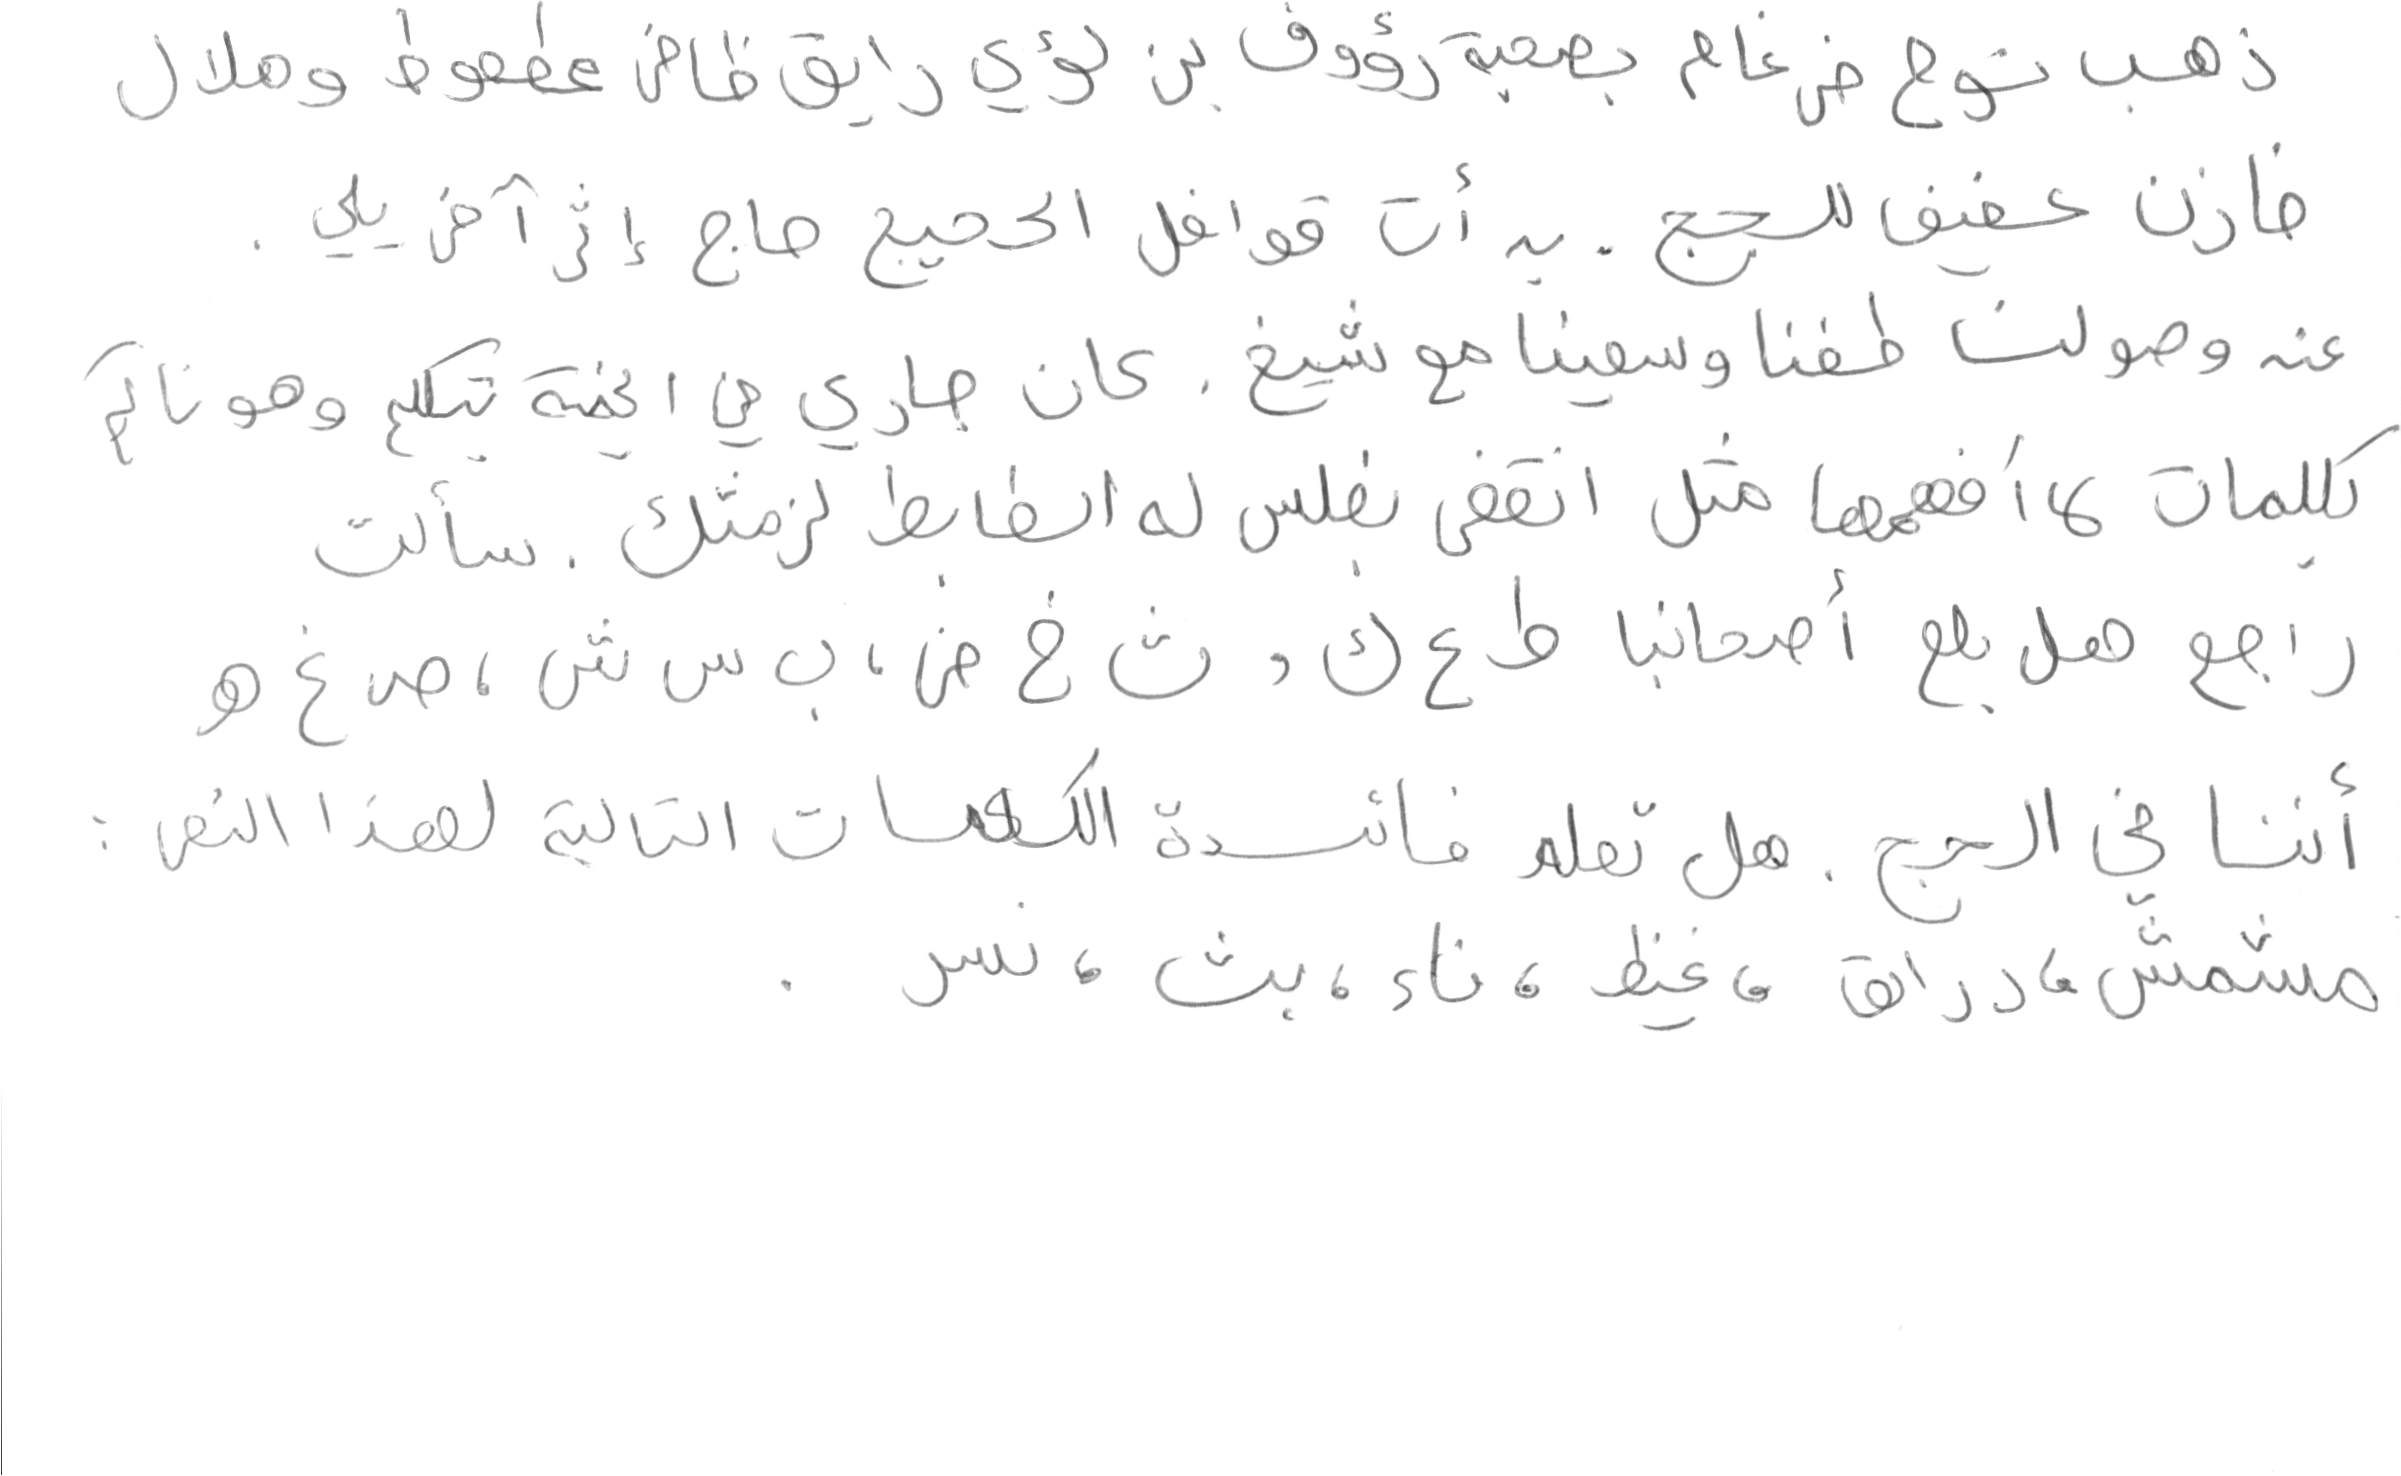 ذهب نوح ضرغام بصحبة رؤوف بن لؤي رايق ظافر عطعوط وهلال
خازن عفيف للحج . بدأت قوافل الحجيج حاج إثر آخر يلي .
عند وصولنا طفنا وسعينا مع شيخ . كان جاري في الخيمة يتكلم وهو نائم
بكلمات لا أفهمها مثل انقض بغلس له الظابط لزمثك . سألت
راجع هل بلغ أصحابنا ط ع ك ، ث خ ض ، ب س ش ، ص غ هو
أننا في الحج . هل تعلم فائدة الكلمات التالية لهذا النص :
مشمش ، دراق ، غيظ ، ناء ، بث ، نسر .